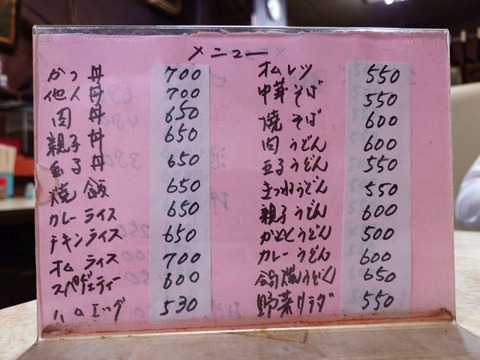 メニュー
かつ丼 700
他人丼 700
肉丼 650
親子丼 650
玉子丼 650
焼飯 650
カレーライス 650
チキンライス 650
オムライス 700
スパゲェティー 600
ハムエッグ 530
オムレツ 550
中華そば 550
焼そば 600
肉うどん 600
玉子うどん 550
きつねうどん 550
親子うどん 600
かやくうどん 500
カレーうどん 600
鍋焼うどん 650
野菜サラダ 550